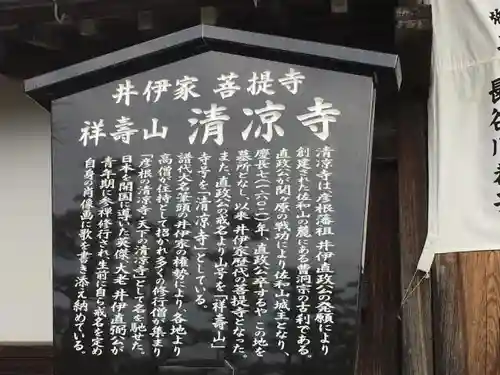 井伊家 菩提寺
祥壽山 清涼寺
清涼寺は、彦根藩祖 井伊直政公の発願により
創建された佐和山の麓にある曹洞宗の古刹である。
直政公が関ヶ原の戦功により佐和山城主となり、
慶長七(一六〇二)年、直政公卒するや この地を
墓所となし、以来 井伊家歴代の菩提寺となった。
また、直政公の戒名より山号を「祥壽山」
寺号を「清涼寺」としている。
譜代大名筆頭の井伊家の権勢により、各地より
高僧が住持として招かれ多くの修行僧が集まり
「彦根の清涼寺・天下の清涼寺」として名を馳せた。
日本を開国に導いた英傑・大老 井伊直弼公が
青年期に参禅修行され生前に自ら戒名を定め
自身の肖像画に歌を書き添え納めている。